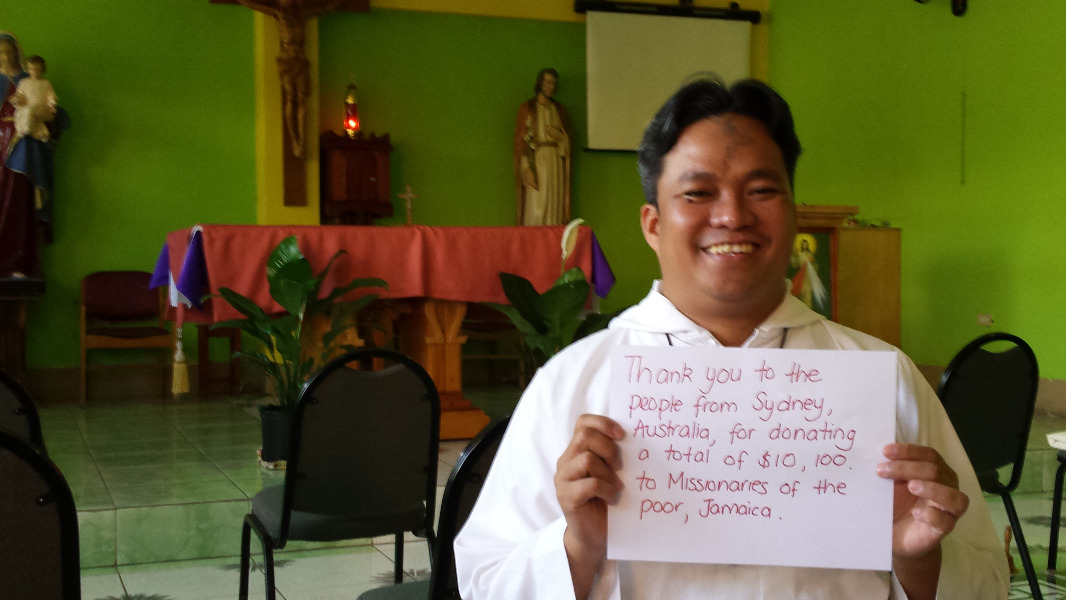 Thank you to the
people from Sydney,
Australia, for donating
a total of $10,100.
to Missionaries of the
poor, Jamaica.